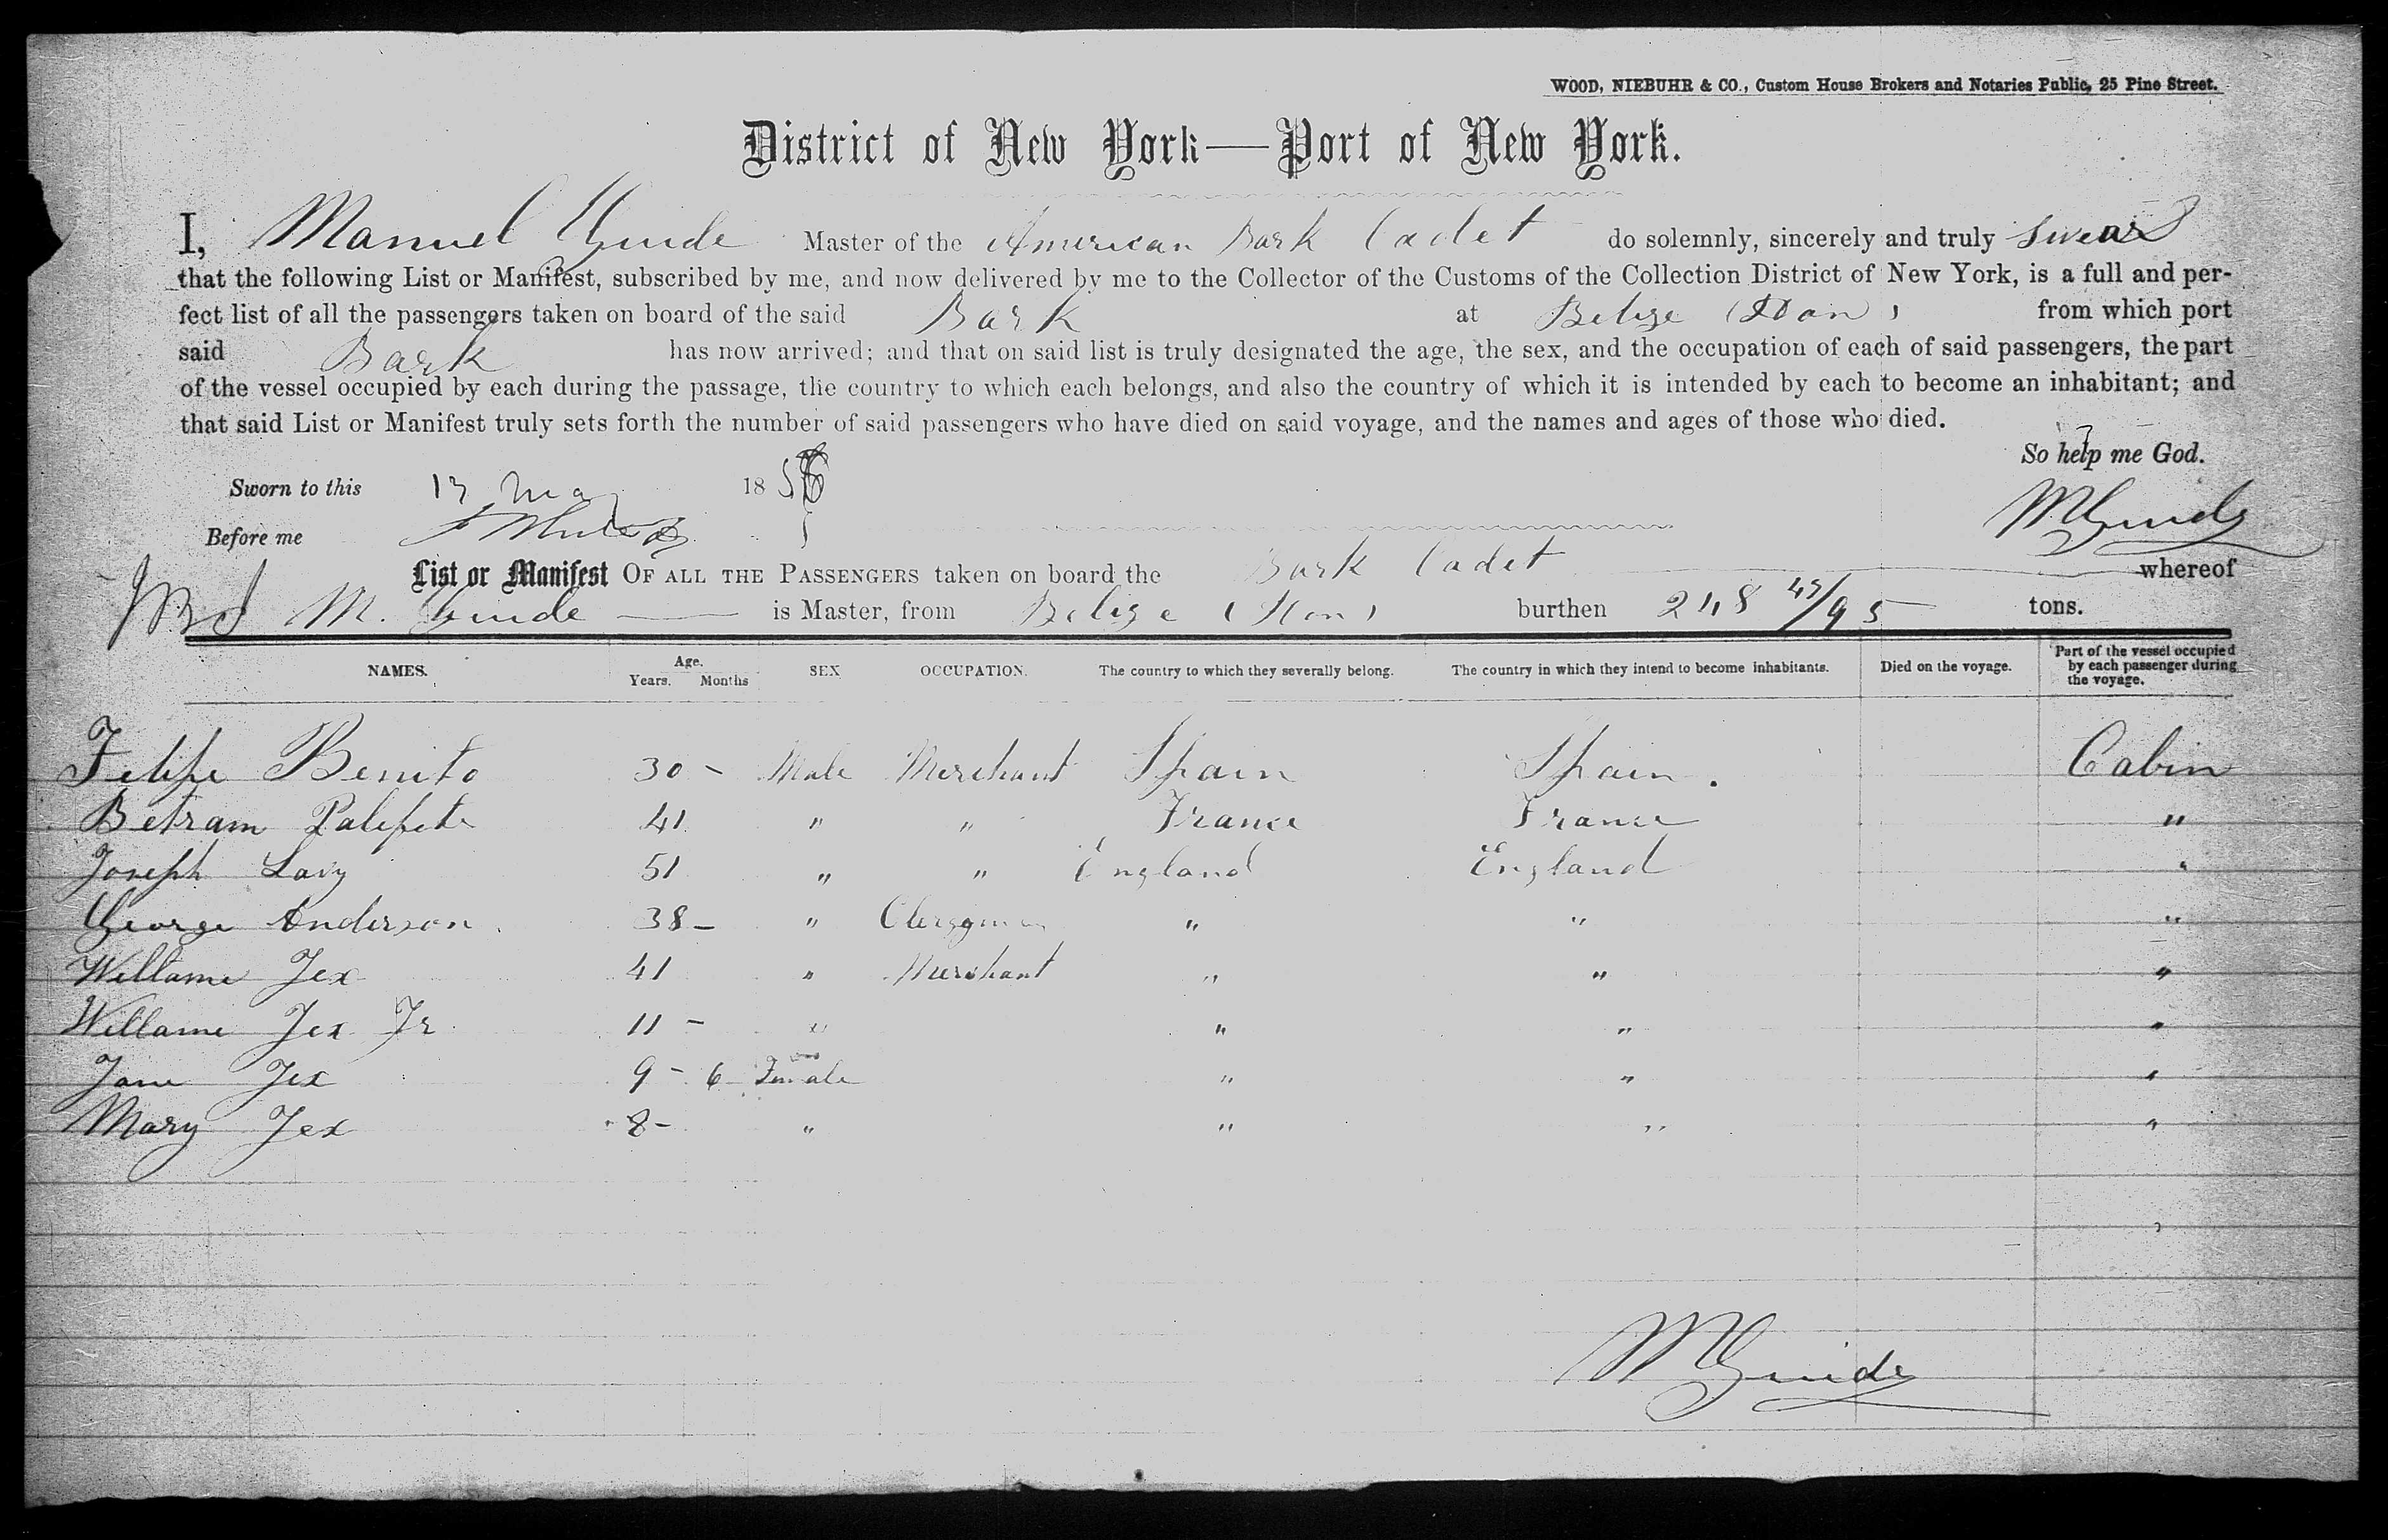 WOOD, NIEBUHR & CO., Custom House Brokers and Notaries Public, 25 Pine Street.
District of New York—Port of New York.
I, Manuel Guide Master of the American Bark Cadet do solemnly, sincerely and truly swear
that the following List or Manifest, subscribed by me, and now delivered by me to the Collector of the Customs of the Collection District of New York, is a full and per-
fect list of all the passengers taken on board of the said Bark at Belize (Hon) from which port
said Bark has now arrived; and that on said list is truly designated the age, the sex, and the occupation of each of said passengers, the part
of the vessel occupied by each during the passage, the country to which each belongs, and also the country of which it is intended by each to become an inhabitant; and
that said List or Manifest truly sets forth the number of said passengers who have died on said voyage, and the names and ages of those who died.
So help me God.
Sworn to this 17 May 185
MGuide
Before me
List or Manifest OF ALL THE PASSENGERS taken on board the Bark Cadet whereof
M. Guide is Master, from Belize (Hon) burthen 248 /95 tons.
NAMES. Age. Years. Months SEX OCCUPATION. The country to which they severally belong. The country in which they intend to become inhabitants. Died on the voyage. Part of the vessel occupied by each passenger during the voyage.
Felipe Benito 30 - Male Merchant Spain Spain. Cabin
Betram 41 " " France France "
Joseph Lavy 51 " " England England "
George Anderson 38 - " Clergyman " " "
Willame Jex 41 " Merchant " " "
Willame Jex Jr 11 - " " " "
Jane Jex 9 - 6 Female " " "
Mary Jex 8 - " " " "
MGuide